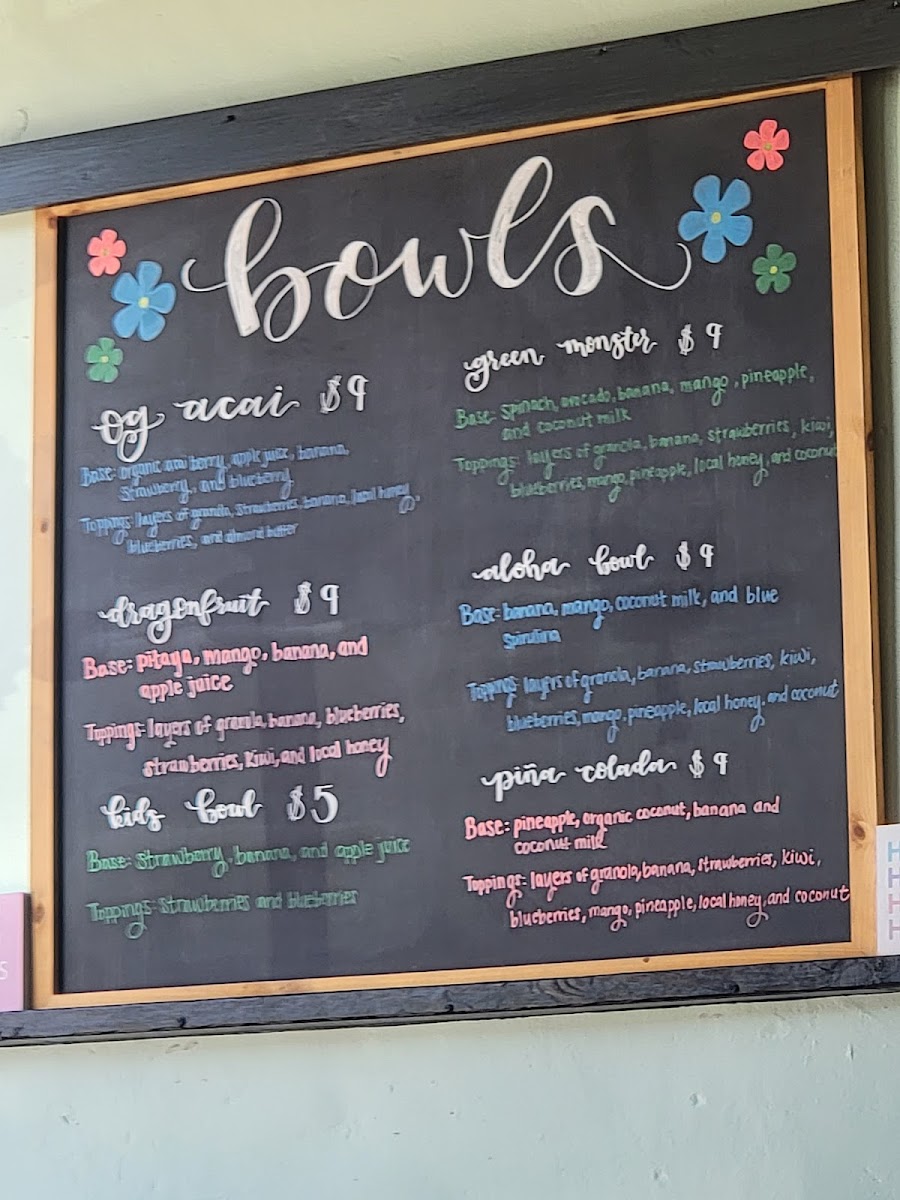 bowls
og acai $9
Base: organic acai berry, apple juice, banana,
strawberry, and blueberry
Toppings: layers of granola, strawberries, banana, local honey,
blueberries, and almond butter
dragonfruit $9
Base: pitaya, mango, banana, and
apple juice
Toppings: layers of granola, banana, blueberries,
strawberries, kiwi, and local honey
kids bowl $5
Base: strawberry, banana, and apple juice
Toppings: strawberries and blueberries
green monster $9
Base: spinach, avocado, banana, mango, pineapple,
and coconut milk
Toppings: layers of granola, banana, strawberries, kiwi,
blueberries, mango, pineapple, local honey, and coconut
aloha bowl $9
Base: banana, mango, coconut milk, and blue
spirulina
Toppings: layers of granola, banana, strawberries, kiwi,
blueberries, mango, pineapple, local honey, and coconut
piña colada $9
Base: pineapple, organic coconut, banana and
coconut milk
Toppings: layers of granola, banana, strawberries, kiwi,
blueberries, mango, pineapple, local honey, and coconut
S
H
H
H
H